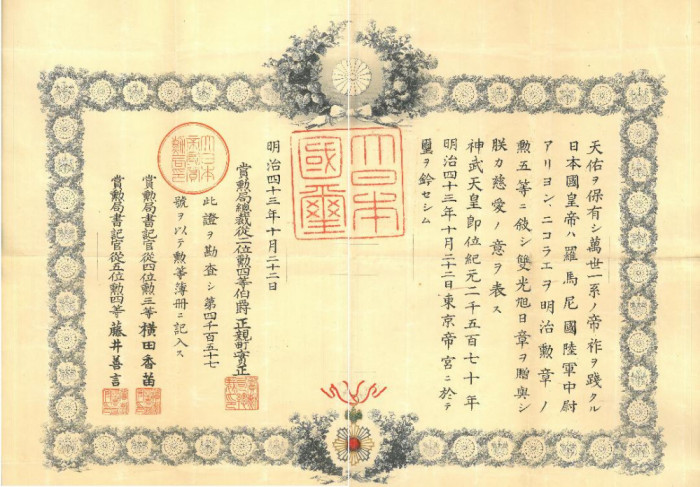 天佑ヲ保有シ萬世一系ノ帝祚ヲ踐タル
日本國皇帝ハ羅馬尼國陸軍中尉
アリヨン、ニコラエヲ明治勲章ノ
勲五等ニ敍シ雙光旭日章ヲ贈與シ
朕カ慈愛ノ意ヲ表ス
神武天皇即位紀元二千五百七十年
明治四十三年十月二十二日東京帝宮ニ於テ
璽ヲ鈐セシム
大日本
國璽
明治四十三年十月二十二日
賞勲局總裁從二位勲四等伯爵 正親町實正
此證ヲ勘査シ第四千百五十七
號ヲ以テ勲等簿册ニ記入ス
賞勲局書記官從四位勲三等 横田香苗
賞勲局書記官從五位勲四等 藤井善言